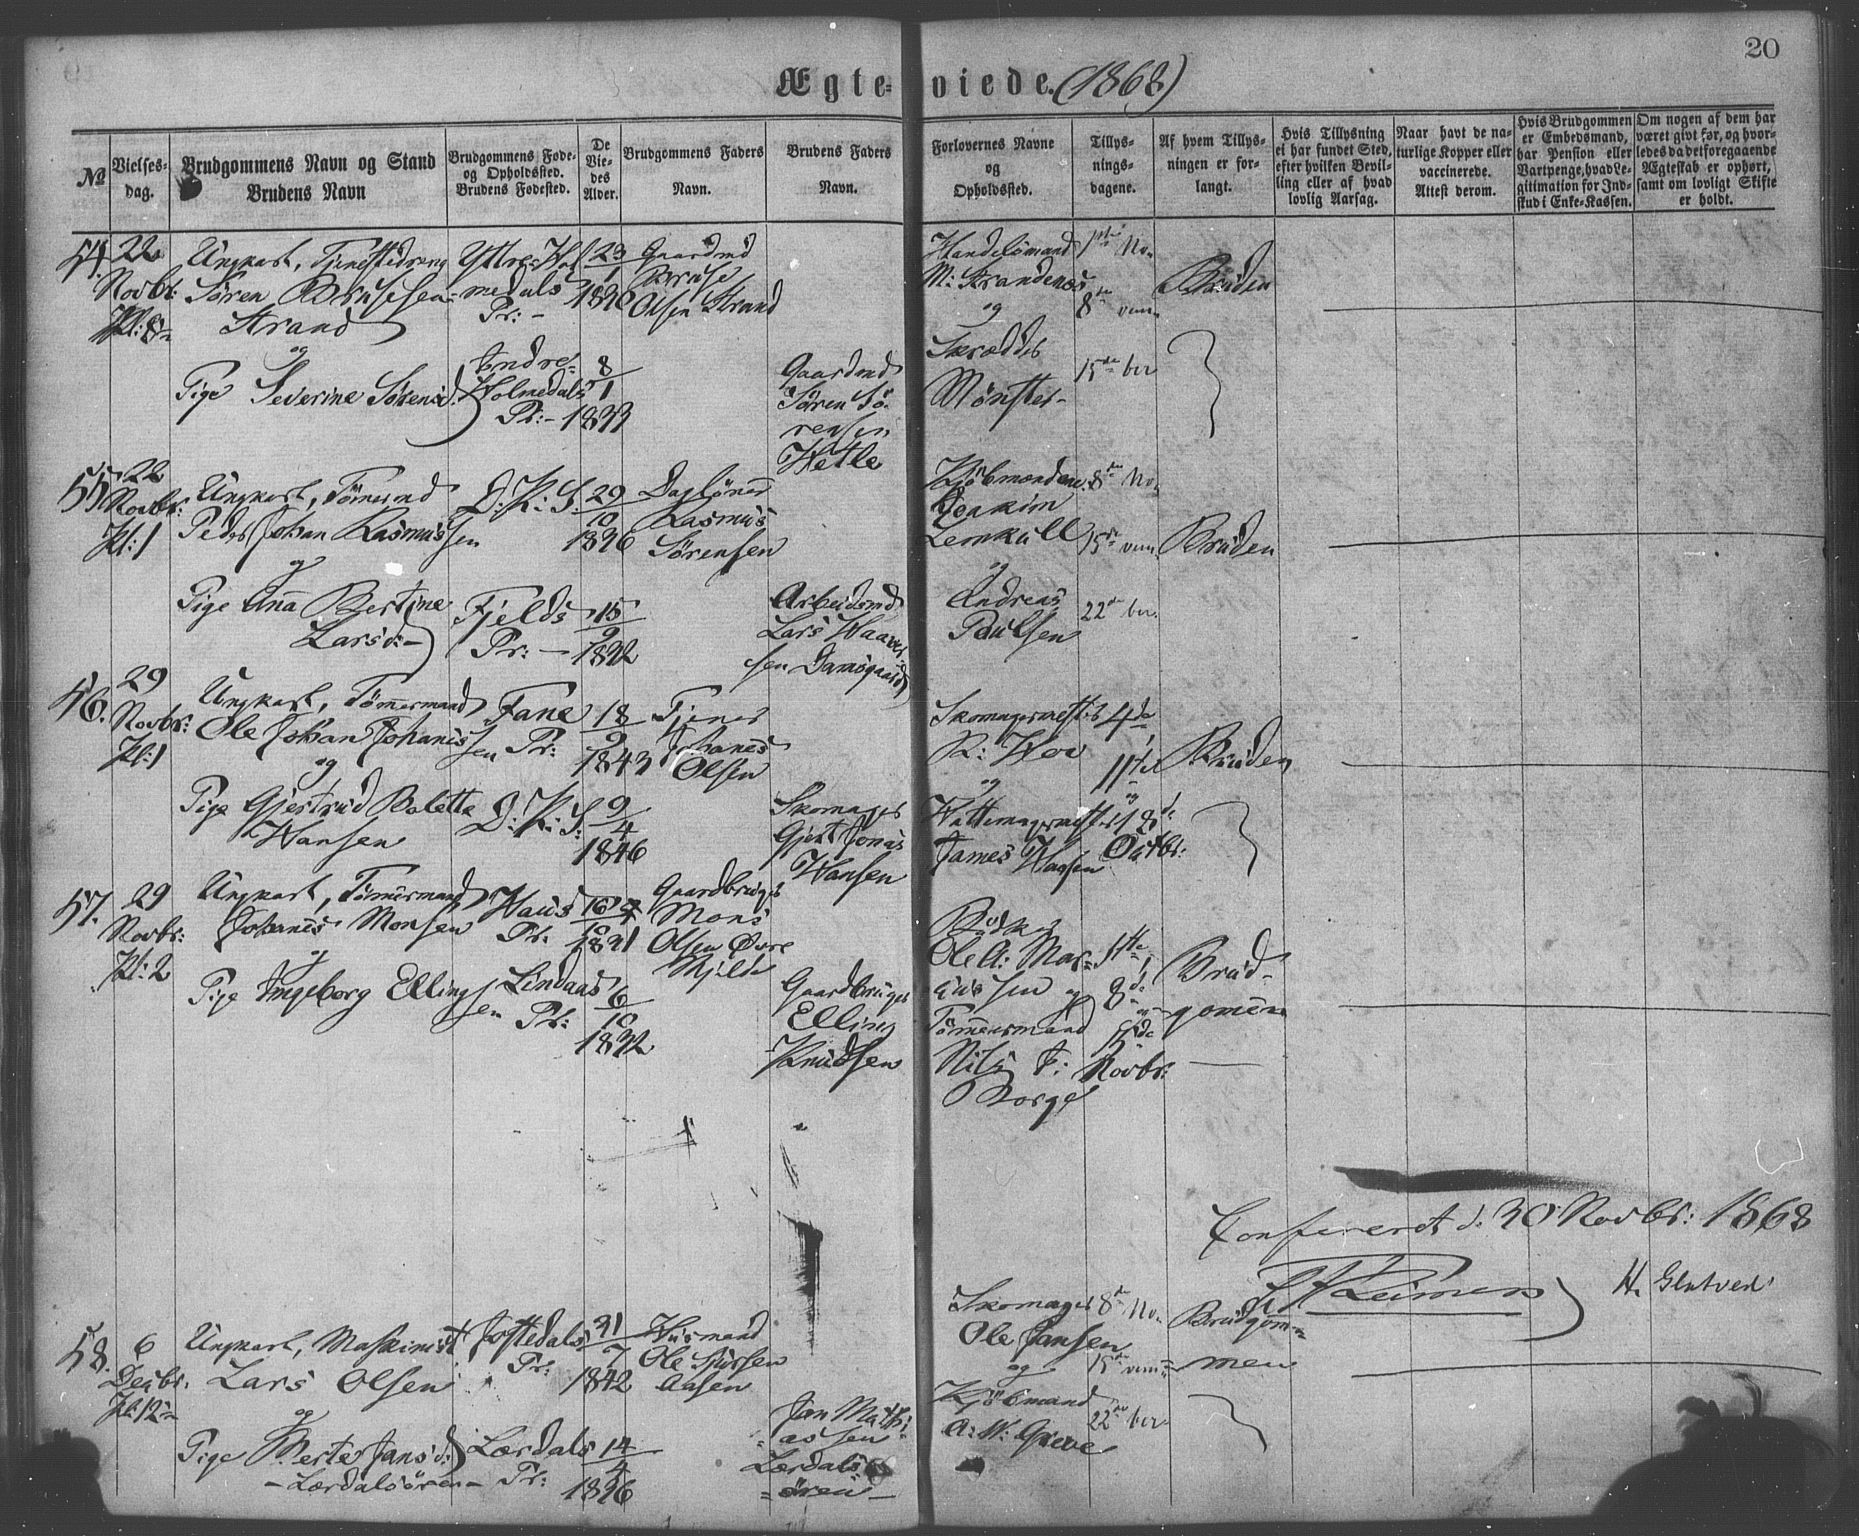 20
Ægteviede. (1868)
No
Vielsesdag.
Brudgommens Navn og Stand
Brudens Navn
Brudgommens Føde- og Opholdssted.
Brudens Fødested.
De Viedes Alder.
Brudgommens Faders Navn.
Brudens Faders Navn.
Forlovernes Navne og Opholdssted.
Tillysningsdagene.
Af hvem Tillysningen er forlangt.
Hvis Tillysning ei har fundet Sted, efter hvilken Bevilling eller af hvad lovlig Aarsag.
Naar havt de naturlige Kopper eller vaccinerede. Attest derom.
Hvis Brudgommen er Embedsmand, har Pension eller Vartpenge, hvad Legitimation for Indskud i Enke-Kassen.
Om nogen af dem har været givt før, og hvorledes da det foregaaende Ægteskab er ophørt, samt om lovligt Skifte er holdt.
54. 22 Novbr: Kl: 8
Ungkarl, Tjenestedreng
Søren Brusesen
Strand
og
Pige Severine Sørensd.
Yttre Holmedals Pr:
Indre Holmedals Pr:
23/1 1840
8/1 1843
Gaardmd Bruse Olsen Strand
Gaardmd Søren Sørensen Wetle
Handelsmand M: Strandenæs
og
Skrædder Mønster
1ste No-
8de vem-
15de ber
Bruden
55. 22 Novbr: Kl: 1
Ungkarl, Tømmd
Peder Johan Rasmussen
og
Pige Ana Bertine
Larsd:
D: K: S:
Fjelds Pr:
29/10 1846
15/9 1842
Dagløner Rasmus Sørensen
Arbeidsmd Lars Haaversen Damsgaard
Kjøbmændene Joakim Lemkull
og
Andreas Paulsen
8de No-
15de vem-
22de ber.
Bruden
56. 29 Novbr: Kl: 1
Ungkarl, Tømmermand
Ole Johan Johanessen
og
Pige Gjertrud Bolette
Hansen
Fane Pr:
D: K: S:
18/9 1843
9/4 1846
Tjener Johanes Olsen
Skomager Gjert Jonas Hansen
Skomagermester R: Hov
og
Hattemagermester James Haasen
4de, 11te og 18de Octbr:
Bruden
57. 29 Novbr: Kl: 2
Ungkarl, Tømmermand
Johanes Monsen
og
Pige Ingeborg Ellingsen
Haus Pr:
Lindaas Pr:
16/10 1841
6/10 1842
Gaardbruger Mons Olsen Øvre
Gaardbruger Elling Knudsen
Bødker Ole A: Marcussen og
Tømmermand Nils J: Borge
1ste, 8de og 15de Novbr:
Brudgomen
Confereret d. 30 Novbr: 1868
H. Glatved
58. 6 Decbr. Kl. 12
Ungkarl, Maskinist
Lars Olsen
og
Pige Berte Jansd:
Lærdalsøren
Jostedals Pr:
Lærdals Pr:
31/7 1842
14/4 1846
Husmand Ole Sjursen Aasen
Jan Mathiassen Lærdalsøren
Skomager Ole Jansen
og
Kjøbmand A: W: Greve
8de No-
15de vem-
22de ber
Brudgommen